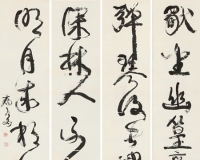 獨坐幽篁
彈琴復長
深林人不
明月來相